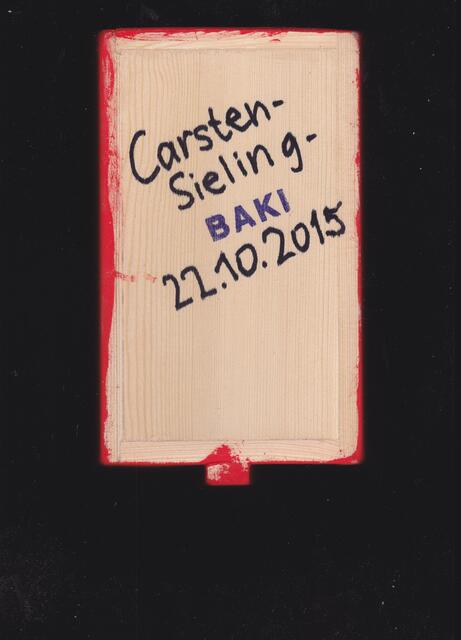 Carsten-
Sieling-
BAKI
22.10.2015